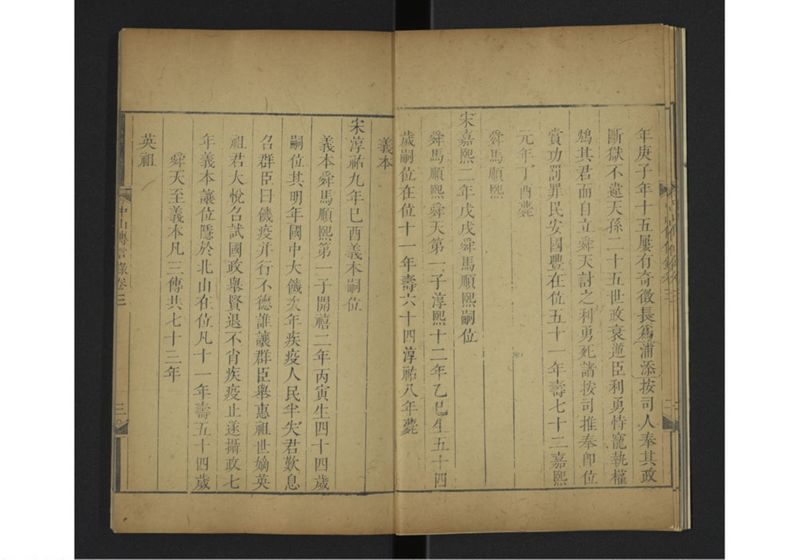 年庚子年十五屢有奇徵長爲浦添按司人奉其政
斷獄不違天孫二十五世政衰逆臣利勇恃寵執權
鴆其君而自立舜天討之利勇死諸按司推奉卽位
賞功罰罪民安國豐在位五十一年壽七十二嘉熙
元年丁酉薨
舜馬順熙
宋嘉熙二年戊戌舜馬順熙嗣位
舜馬順熙舜天第一子淳熙十二年乙巳生五十四
歲嗣位在位十一年壽六十四淳祐八年薨
義本
宋淳祐九年巳酉義本嗣位
義本舜馬順熙第一子開禧二年丙寅生四十四歲
嗣位其明年國中大饑次年疾疫人民半失君歎息
召群臣曰饑疫并行不德誰讓群臣舉惠祖世嫡英
祖君大悅召試國政舉賢退不肖疾疫止遂攝政七
年義本讓位隱於北山在位凡十一年壽五十四歲
舜天至義本凡三傳共七十三年
英祖
中山傳信錄卷三
三